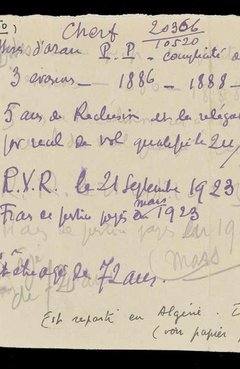 Cherf 20366
10520
d'oran P.P. - Complicité
3 évasions — 1886 — 1888 —
5 ans de Reclusion et la reléga
pr recel de vol qualifié le 24/
R.V.R. le 21 Septembre 1923
Frais de justice payés mars 1923
âgé de 72 ans.
(Mass
Est reparti en Algérie.
(voir papier